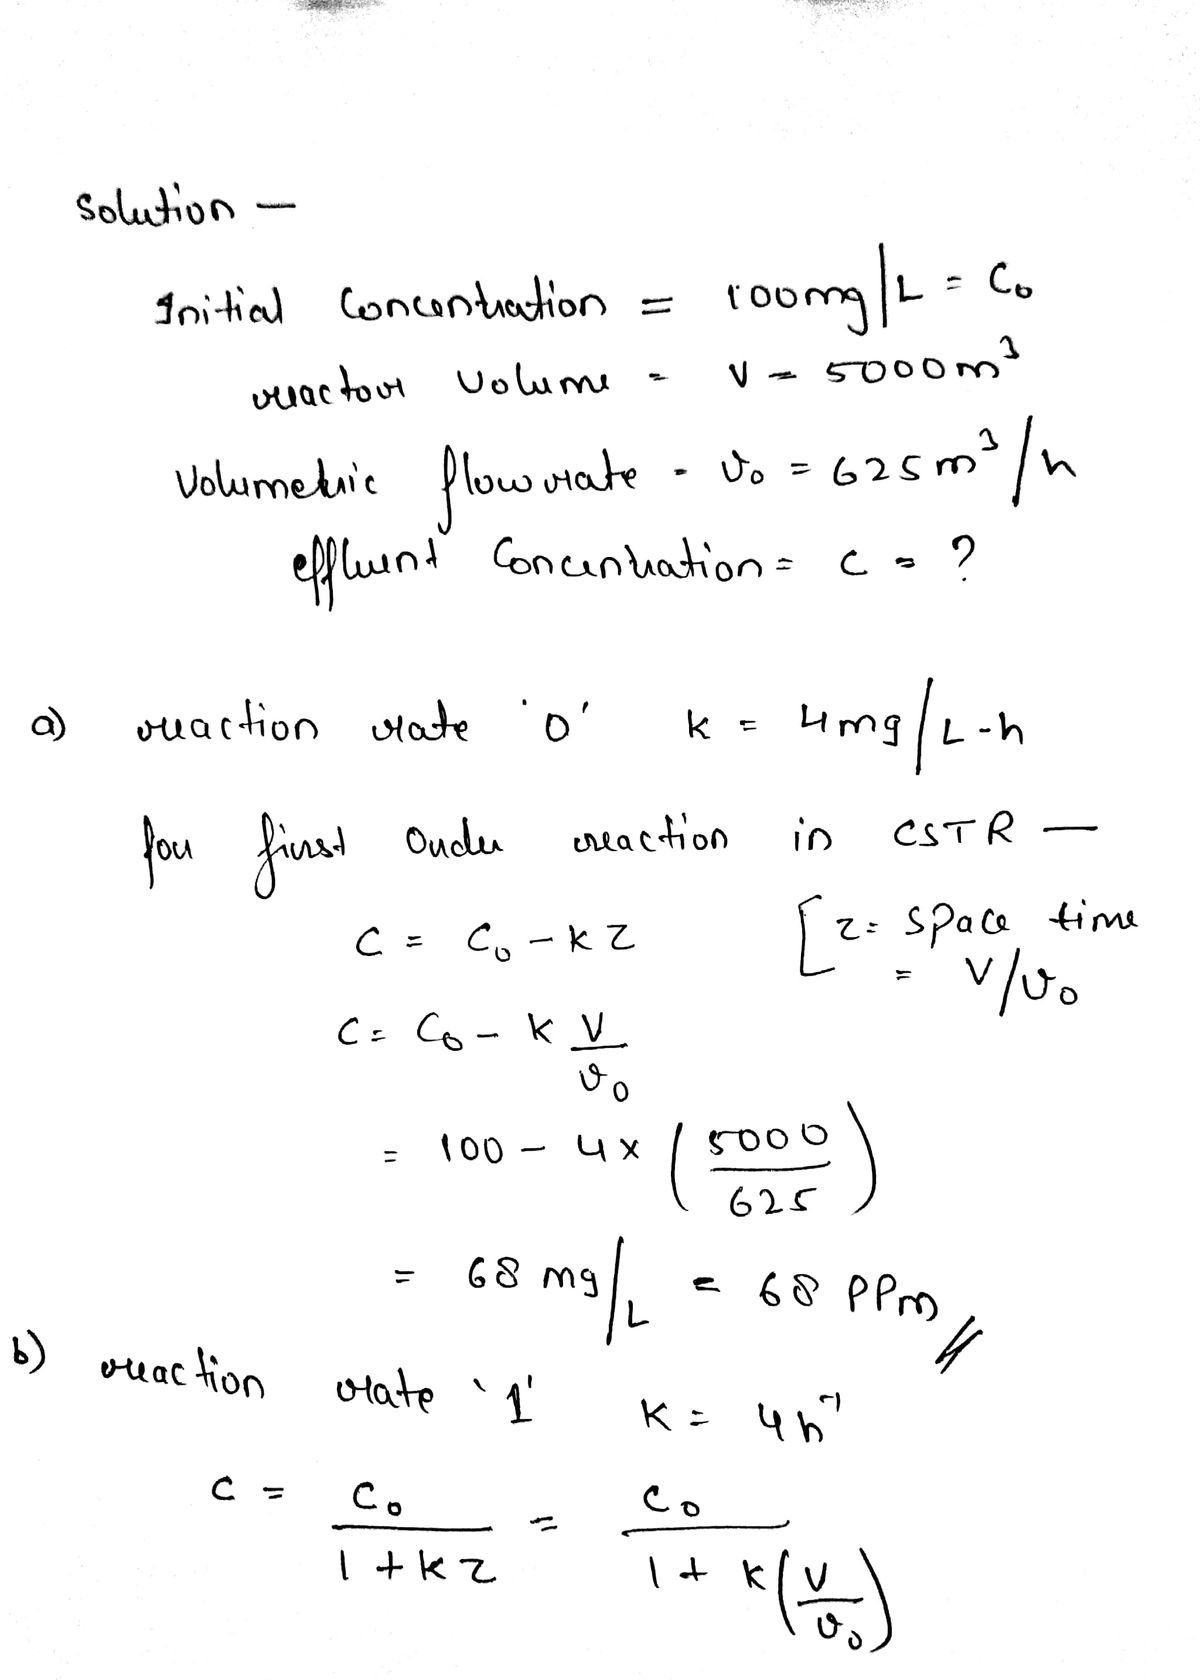 Solution —
Initial Concentration = 100mg/L = C₀
reactor Volume = V = 5000m³
Volumetric flowrate = v₀ = 625m³/h
effluent Concentration = C = ?
a) reaction rate '0' k = 4mg/L-h
for first Order reaction in CSTR —
C = C₀ - kτ [τ = space time
= V/v₀
C = C₀ - k V/v₀
= 100 - 4 x (5000/625)
= 68 mg/L = 68 PPm
b) reaction rate '1' K = 4h⁻¹
C = C₀/(1 + kτ) = C₀/(1 + K(V/v₀))